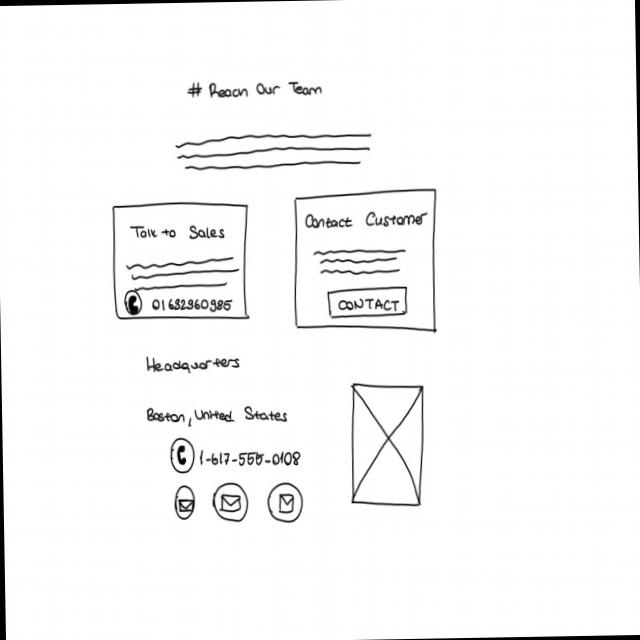 # Reach Our Team
Talk to Sales
01632960985
Contact Customer
CONTACT
Headquarters
Boston, United States
1-617-555-0108